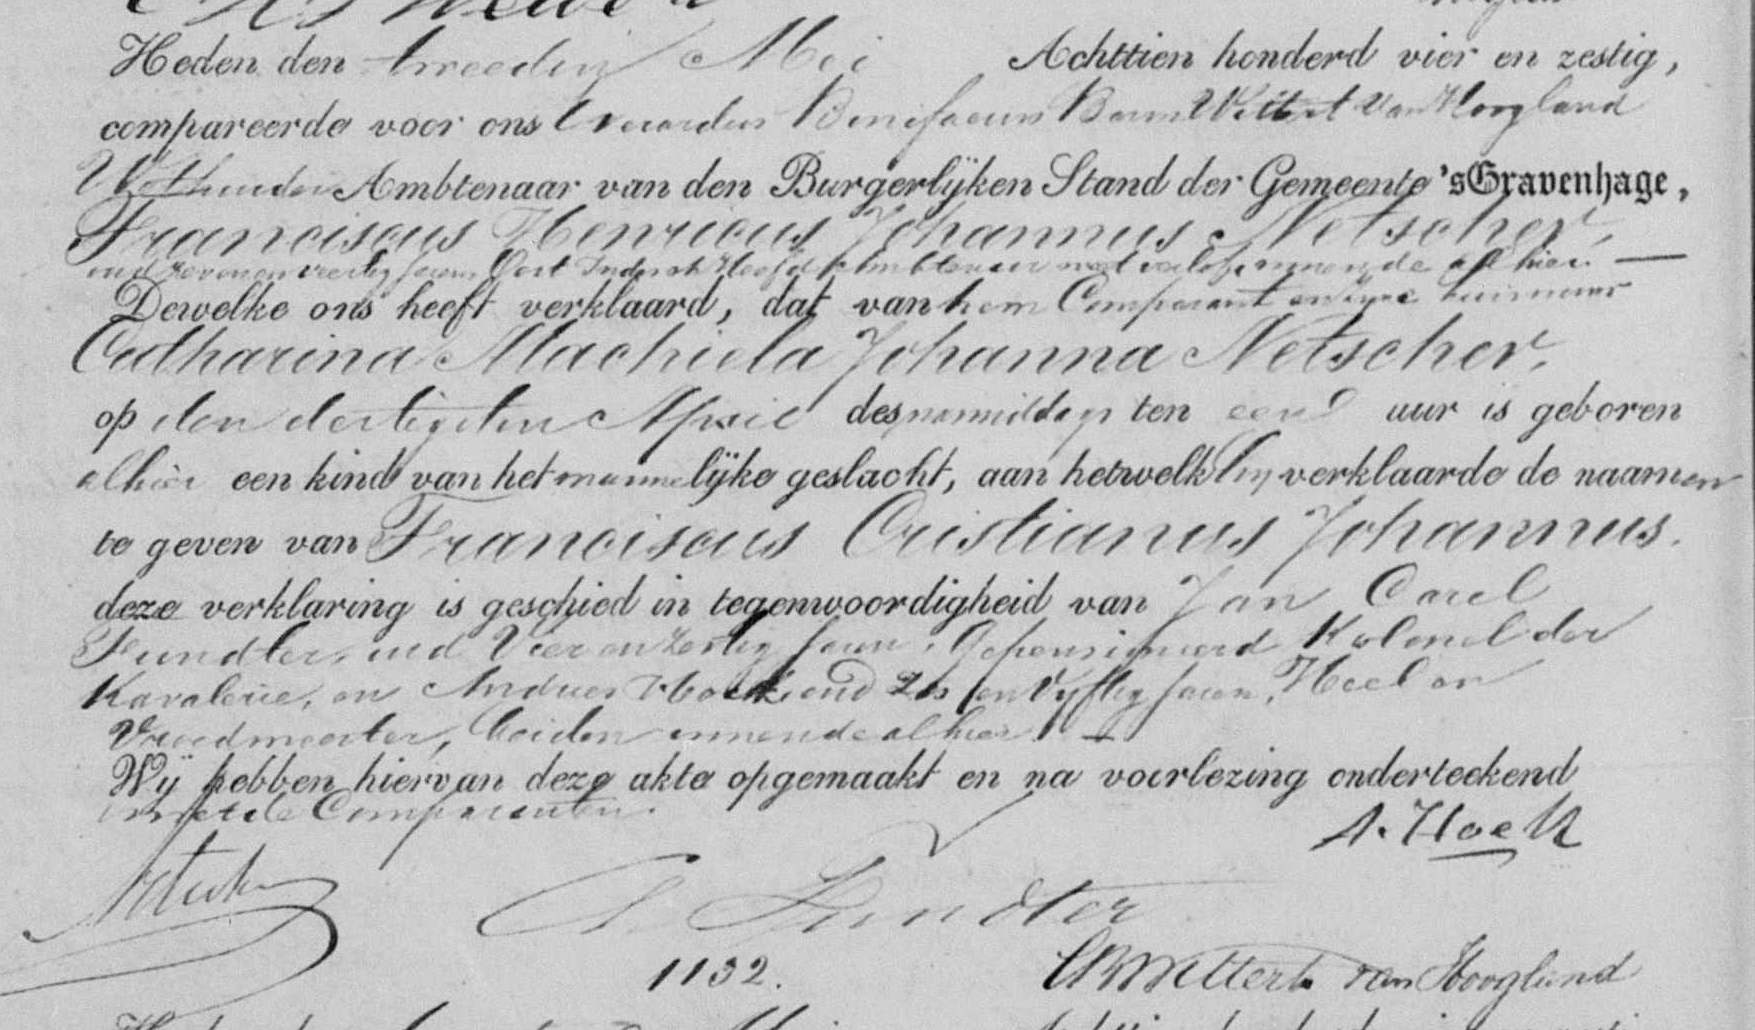 Heden den tweeden Mei Achttien honderd vier en zestig,
compareerde voor ons Everardus Bonifacius Baron Wittert van Hoogland
Wethouder Ambtenaar van den Burgerlijken Stand der Gemeente 's Gravenhage,
Franciscus Henricus Johannus Netscher,
oud zevenenveertig jaren, Oost Indisch Hoofd Ambtenaar met verlof, wonende alhier. —
Dewelke ons heeft verklaard, dat van hem Comparant en zijne huisvrouw
Catharina Machiela Johanna Netscher,
op den dertigsten April des namiddags ten een uur is geboren
alhier een kind van het mannelijke geslacht, aan hetwelk hij verklaarde de naamen
te geven van Franciscus Cristianus Johannus.
deze verklaring is geschied in tegenwoordigheid van Jan Carel
Fundter, oud Vier en Zestig Jaren, Gepensioneerd Kolonel der
Kavalerie, en Andries Hoek, oud Zes en Vijftig jaren, Heel en
Vroedmeester, beiden wonende alhier. —
Wij hebben hiervan deze akte opgemaakt en na voorlezing onderteekend
met de Comparanten.
A. Hoek
Fundter
1132.
EBWittert van Hoogland